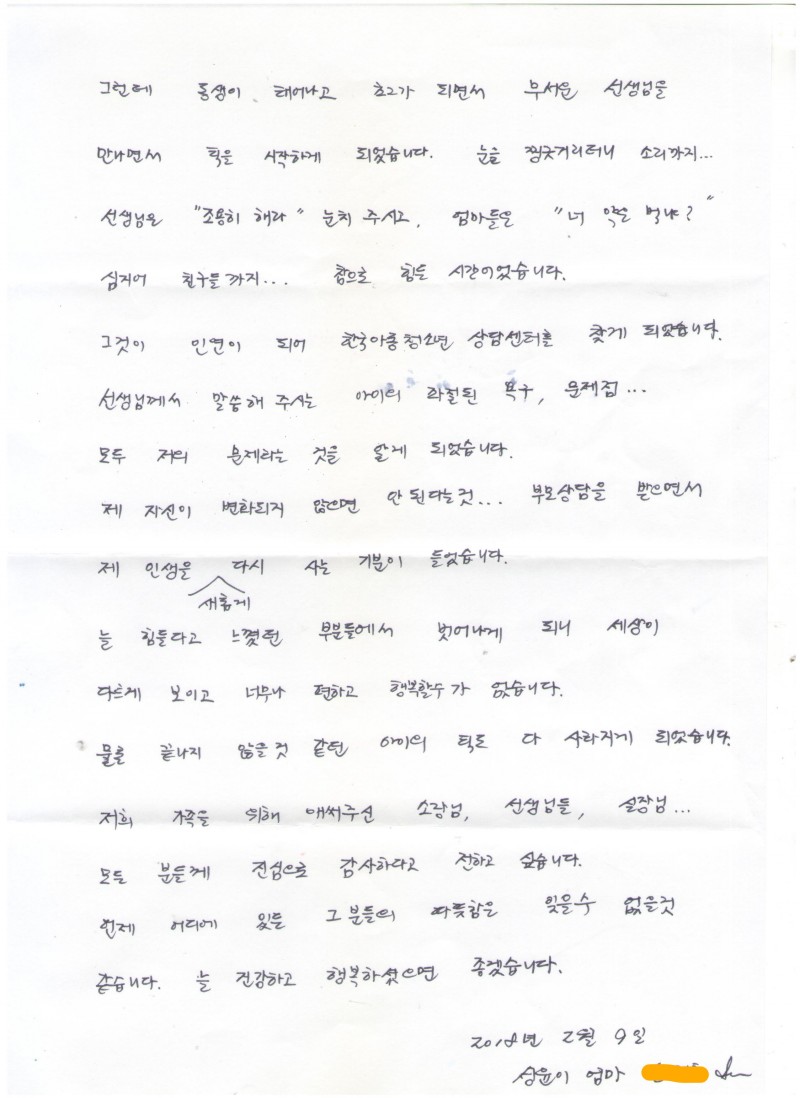 그런데 동생이 태어나고 초2가 되면서 무서운 선생님을
만나면서 틱을 시작하게 되었습니다. 눈을 찡긋거리더니 소리까지...
선생님은 "조용히 해라" 눈치 주시고, 엄마들은 "너 약은 먹냐?"
심지어 친구들까지... 참으로 힘든 시간이었습니다.
그것이 인연이 되어 한국아동청소년 상담센터를 찾게 되었습니다.
선생님께서 말씀해 주시는 아이의 좌절된 욕구, 문제점...
모두 저의 문제라는 것을 알게 되었습니다.
제 자신이 변화되지 않으면 안 된다는것... 부모상담을 받으면서
제 인생을 다시 사는 기분이 들었습니다.
새롭게
늘 힘들다고 느꼈던 부분들에서 벗어나게 되니 세상이
다르게 보이고 너무나 편하고 행복할수가 없습니다.
물론 끝나지 않을것 같던 아이의 틱도 다 사라지게 되었습니다.
저희 가족을 위해 애써주신 소장님, 선생님들, 실장님...
모든 분들께 진심으로 감사하다고 전하고 싶습니다.
언제 어디에 있든 그 분들의 따뜻함은 잊을수 없을것
같습니다. 늘 건강하고 행복하셨으면 좋겠습니다.
2018년 2월 9일
상윤이 엄마